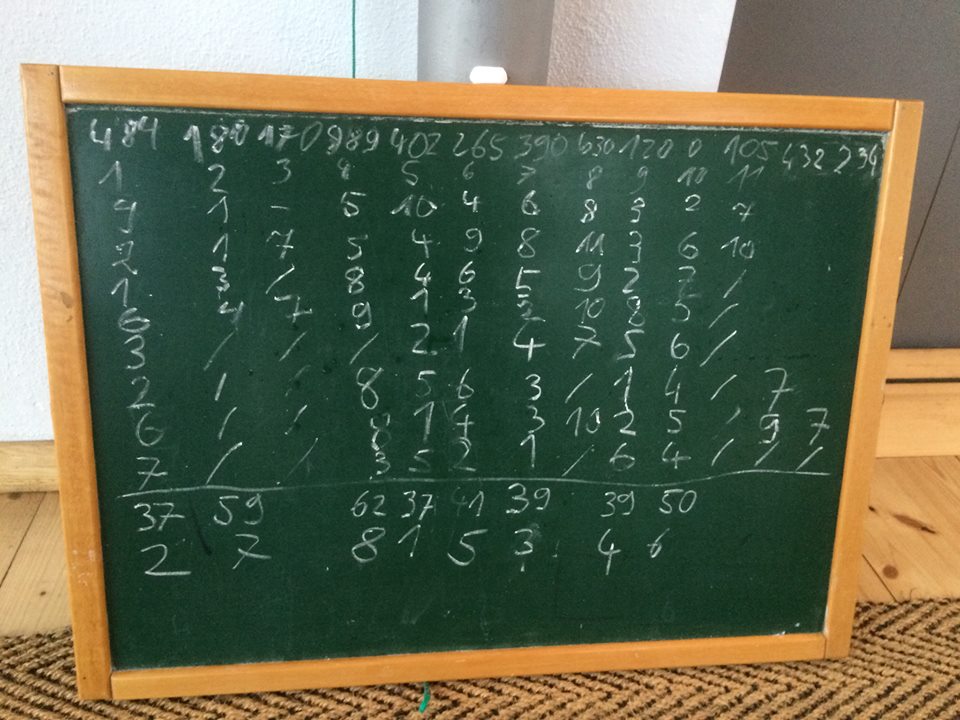 484 180 170 989 402 265 390 630 120 0 105 432 234
1 2 3 4 5 6 7 8 9 10 11
4 1 - 5 10 4 6 8 3 2 7
2 1 7 5 4 9 8 11 3 6 10
1 3 / 8 4 6 5 9 2 7 /
6 4 7 9 1 3 2 10 8 5 /
3 / / / 2 1 4 7 5 6 /
2 / / 8 5 6 3 / 1 4 / 7
6 / / 1 4 3 10 2 5 / 9 7
7 / / 3 5 2 1 / 6 4 / / /
37 59 62 37 41 39 39 50
2 7 8 1 5 3 4 6